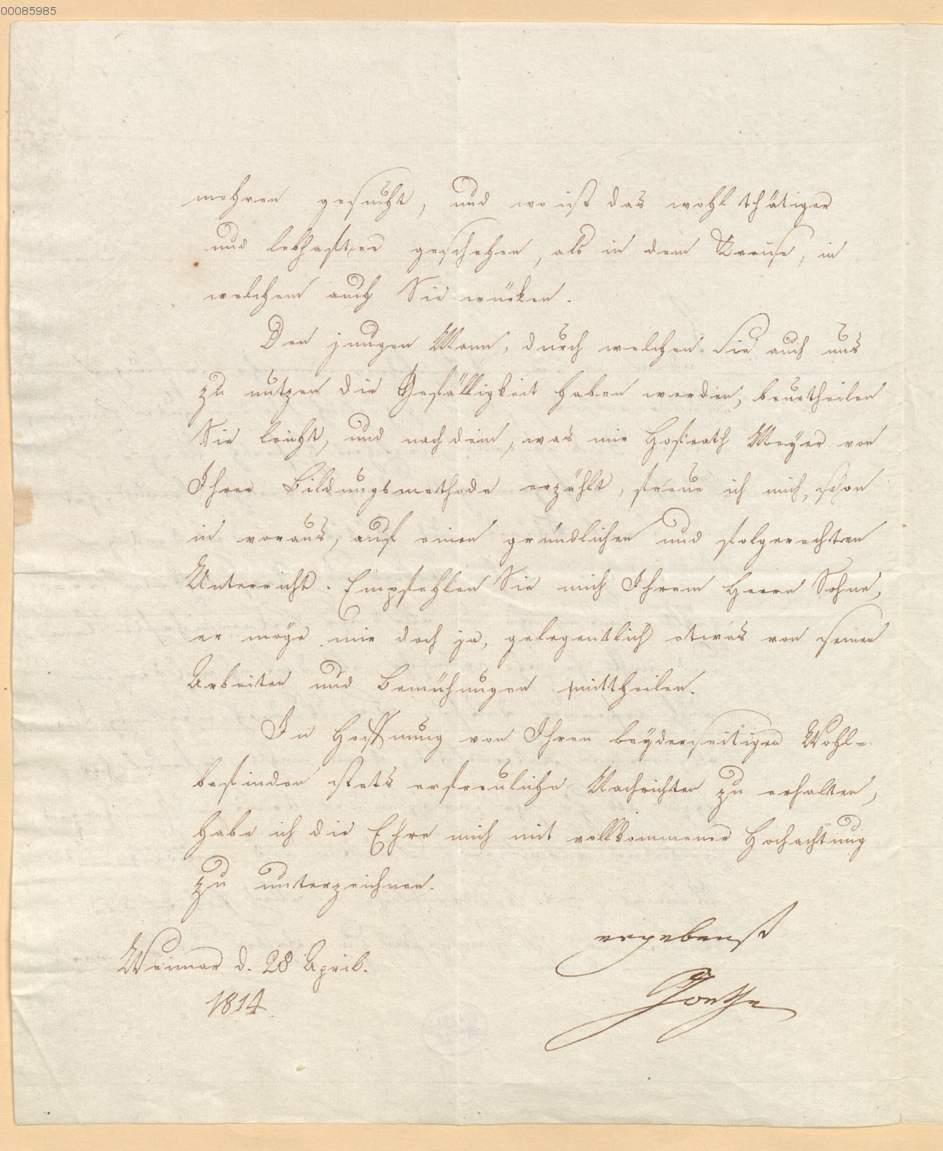 00085985
mehren gesucht, und wo ist das wohlthätiger
und lebhafter geschehen, als in dem Kreise, in
welchem auch Sie würken.
Den jungen Mann, durch welchen Sie auch uns
zu nutzen die Gefälligkeit haben werden, beurtheilen
Sie leicht, und nach dem, was mir Hofrath Meyer von
Ihrer Bildungsmethode erzählt, freue ich mich schon
in voraus, auf einen gründlichen und folgerechten
Unterricht. Empfehlen Sie mich Ihrem Herrn Sohne,
er möge mir doch ja, gelegentlich etwas von seinen
Arbeiten und Bemühungen mittheilen.
In Hoffnung von Ihren beyderseitigen Wohl-
befinden stets erfreuliche Nachrichten zu erhalten,
habe ich die Ehre mich mit vollkommener Hochachtung
zu unterzeichnen.
ergebenst
Weimar d. 28 April.
Goethe
1814.